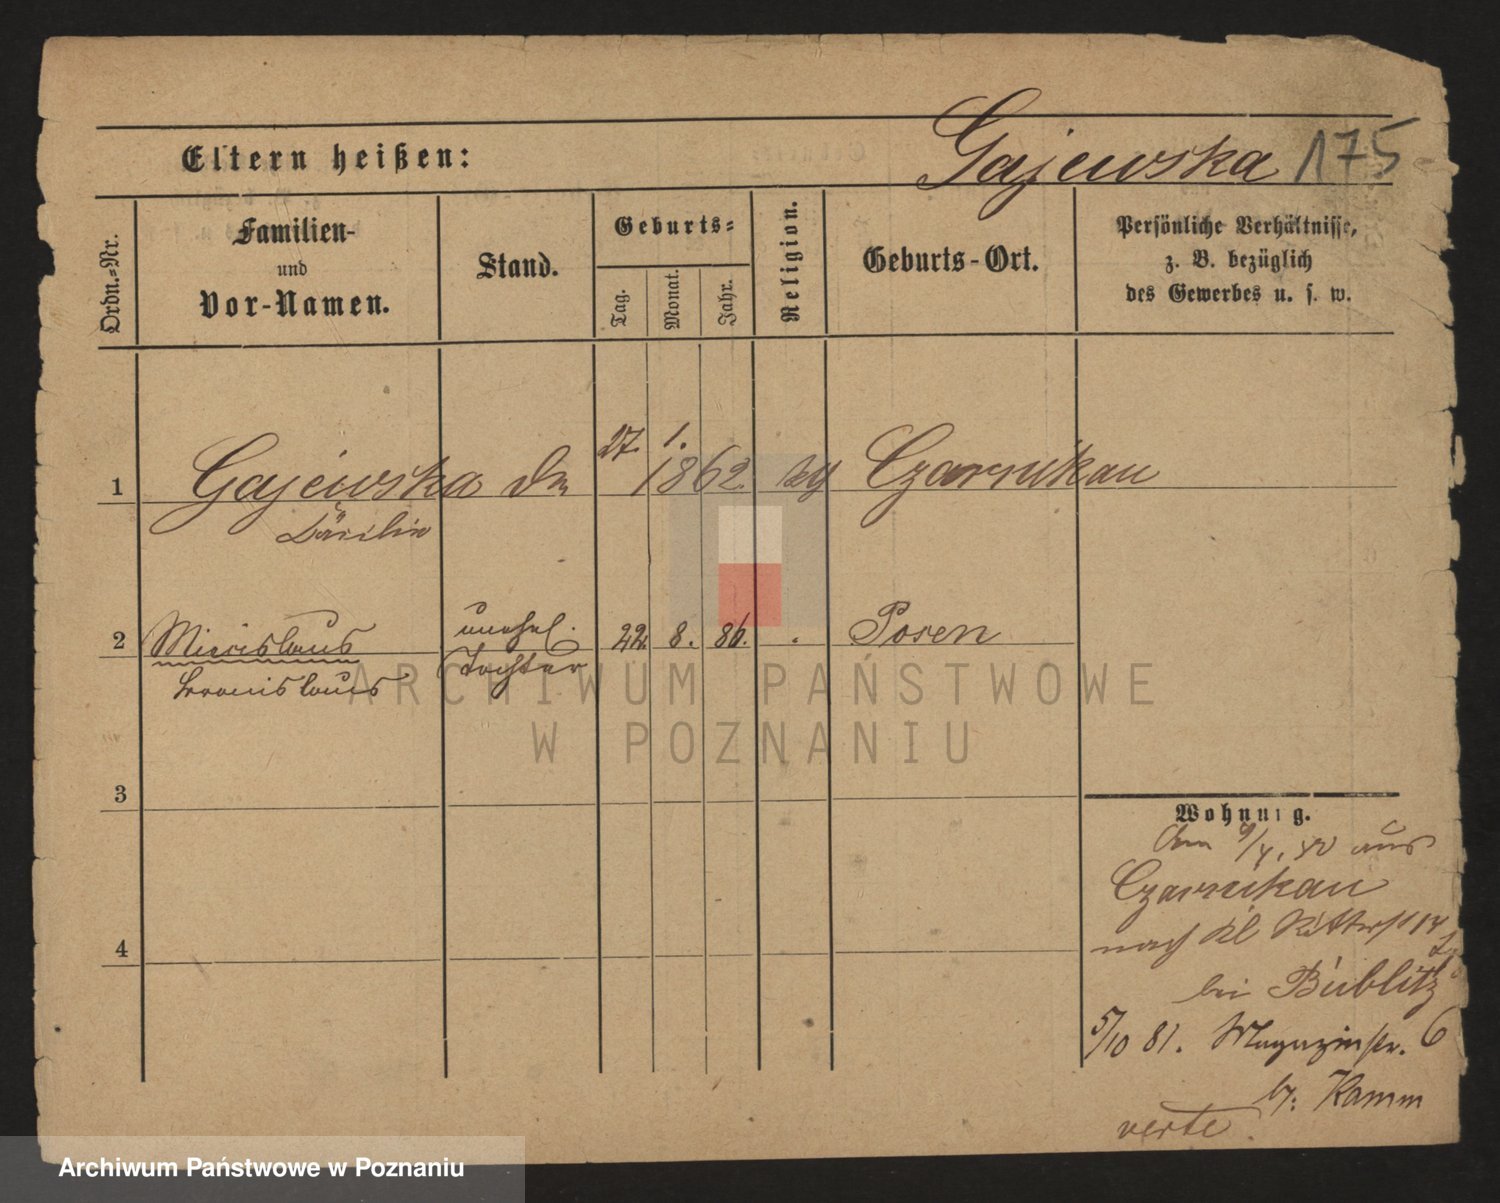 Gajewska 175
Eltern heißen:
Ordn.=Nr.
Familien-
und
Vor-Namen.
Stand.
Geburts=
Tag.
Monat.
Jahr.
Religion.
Geburts-Ort.
Persönliche Verhältnisse,
z. B. bezüglich
des Gewerbes u. s. w.
27. 1.
1 Gajewska 1862. Czarnikau
Cäcilie
unehel.
2 Miecislaus 22. 8. 86. Posen
Tochter
Bronislaus
ARCHIWUM PAŃSTWOWE
W POZNANIU
3
Wohnung.
aus
Czarnikau
4
nach Kl Ritterst 14
bei Bublitz
5/10 81. Magazinstr. 6
b: Kamm
verte
Archiwum Państwowe w Poznaniu